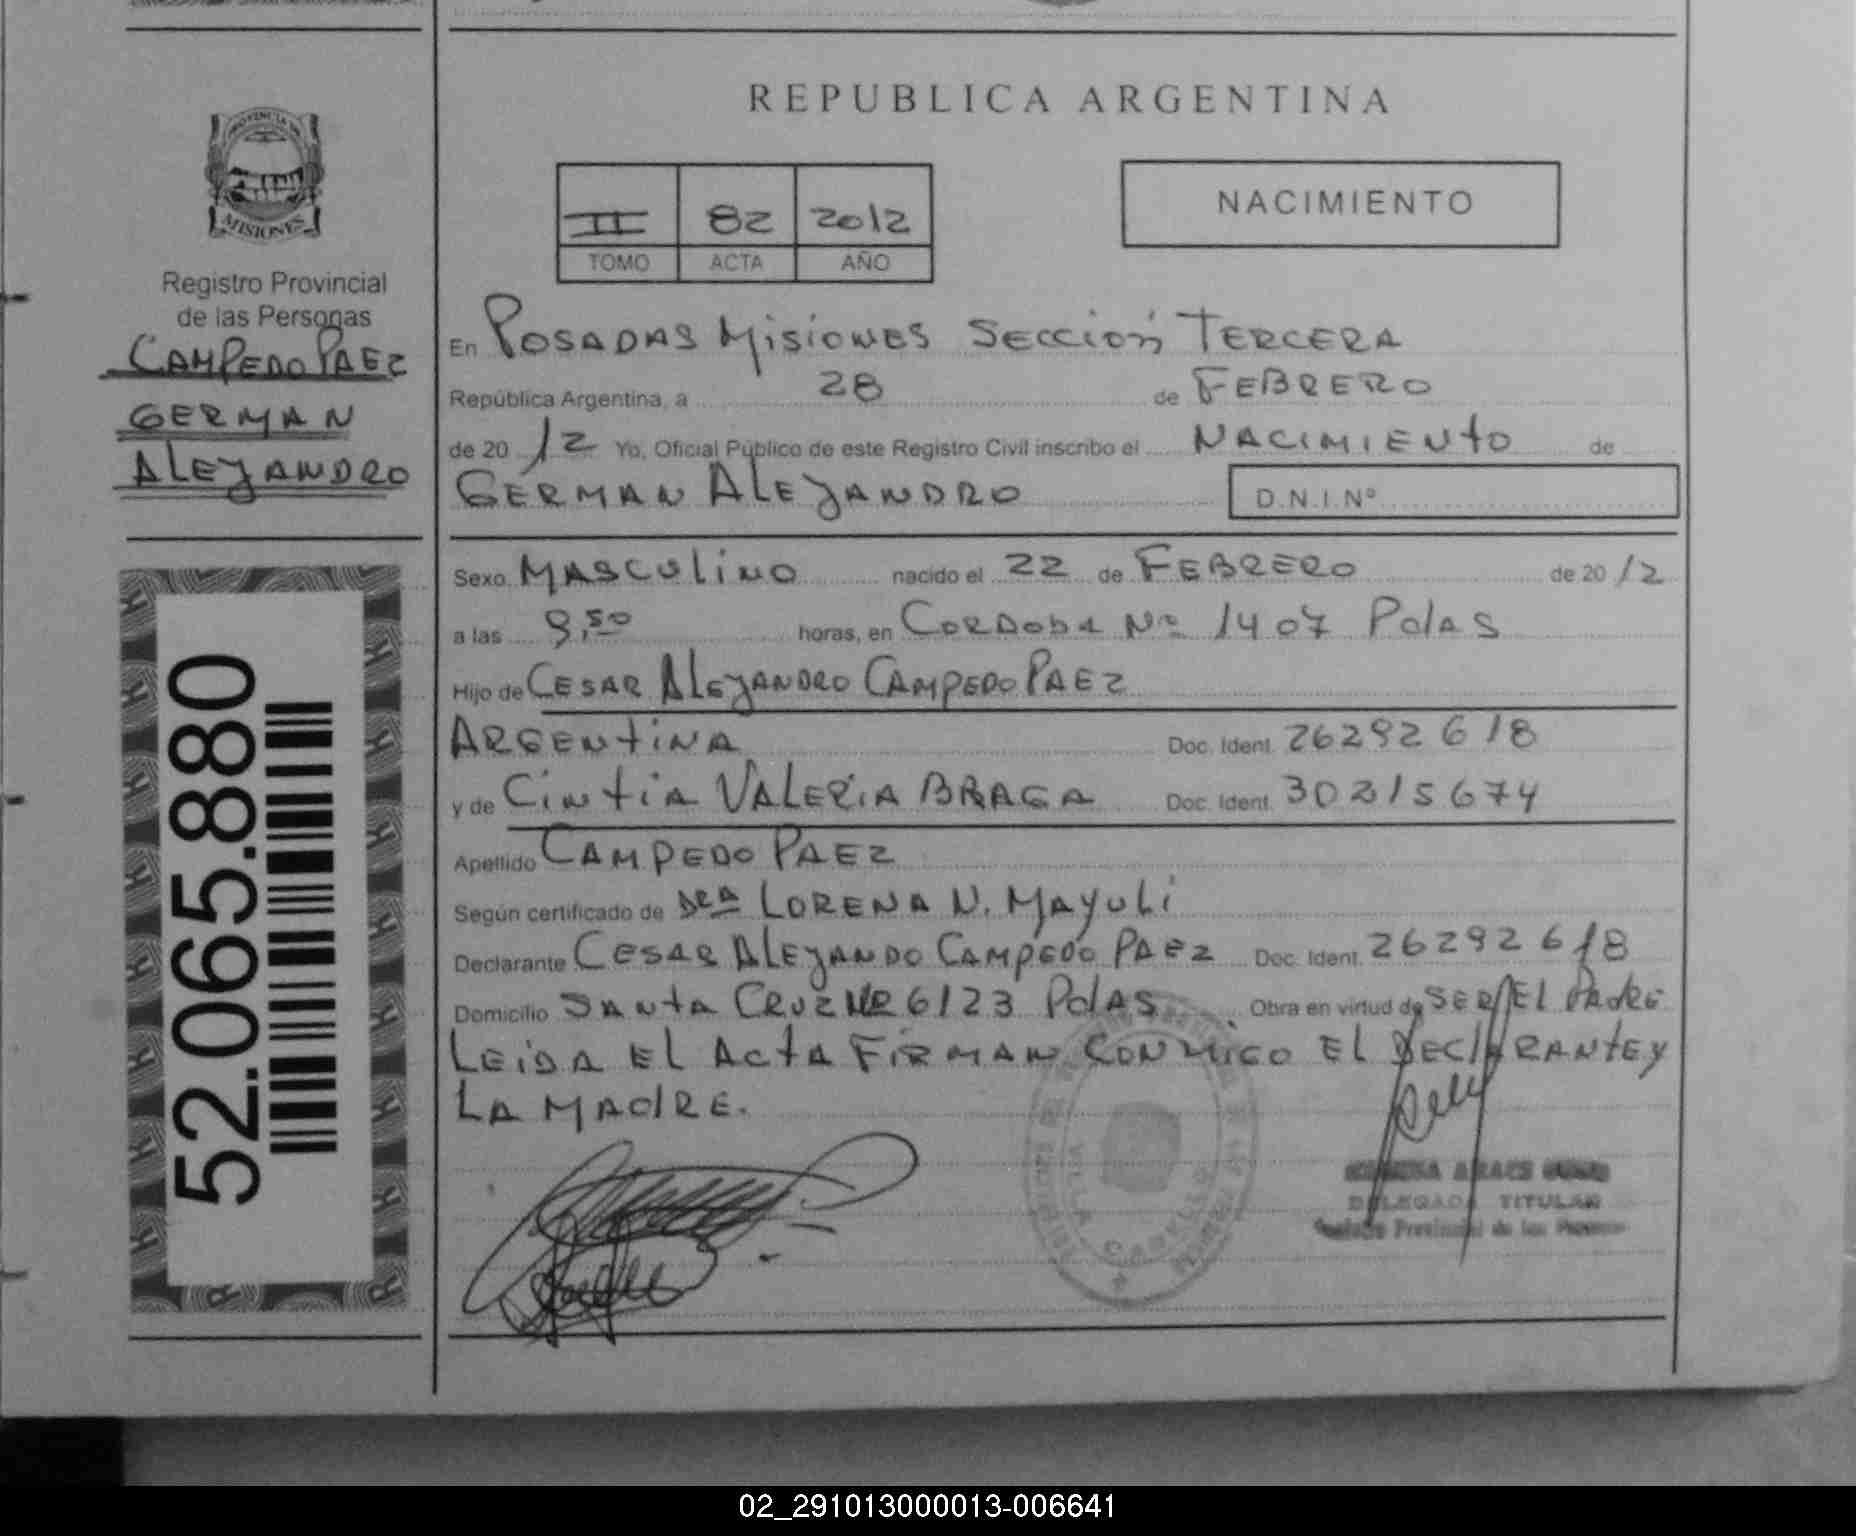 PROVINCIA DE
MISIONES
Registro Provincial
de las Personas
CAMPEDO PAEZ
GERMAN
ALEJANDRO
52.065.880
REPUBLICA ARGENTINA
II 82 2012
TOMO ACTA AÑO
NACIMIENTO
En POSADAS MISIONES SECCIÓN TERCERA
República Argentina, a 28 de FEBRERO
de 20 12 Yo, Oficial Público de este Registro Civil inscribo el NACIMIENTO de
GERMAN ALEJANDRO D.N.I.Nº
Sexo MASCULINO nacido el 22 de FEBRERO de 20 12
a las 9,50 horas, en CORDOBA Nº 1407 PdAS
Hijo de CESAR ALEJANDRO CAMPEDO PAEZ
ARGENTINA Doc. Ident. 26292618
y de CINTIA VALERIA BRAGA Doc. Ident. 30215674
Apellido CAMPEDO PAEZ
Según certificado de DRA LORENA N. MAYULI
Declarante CESAR ALEJANDO CAMPEDO PAEZ Doc. Ident. 26292618
Domicilio SANTA CRUZ Nº 6123 PdAS Obra en virtud de SER EL PADRE
LEIDA EL ACTA FIRMAN CONMIGO EL DECLARANTE Y
LA MADRE.
VILLA CABELLO
DELEGADA TITULAR
Registro Provincial de las Personas
02_291013000013-006641